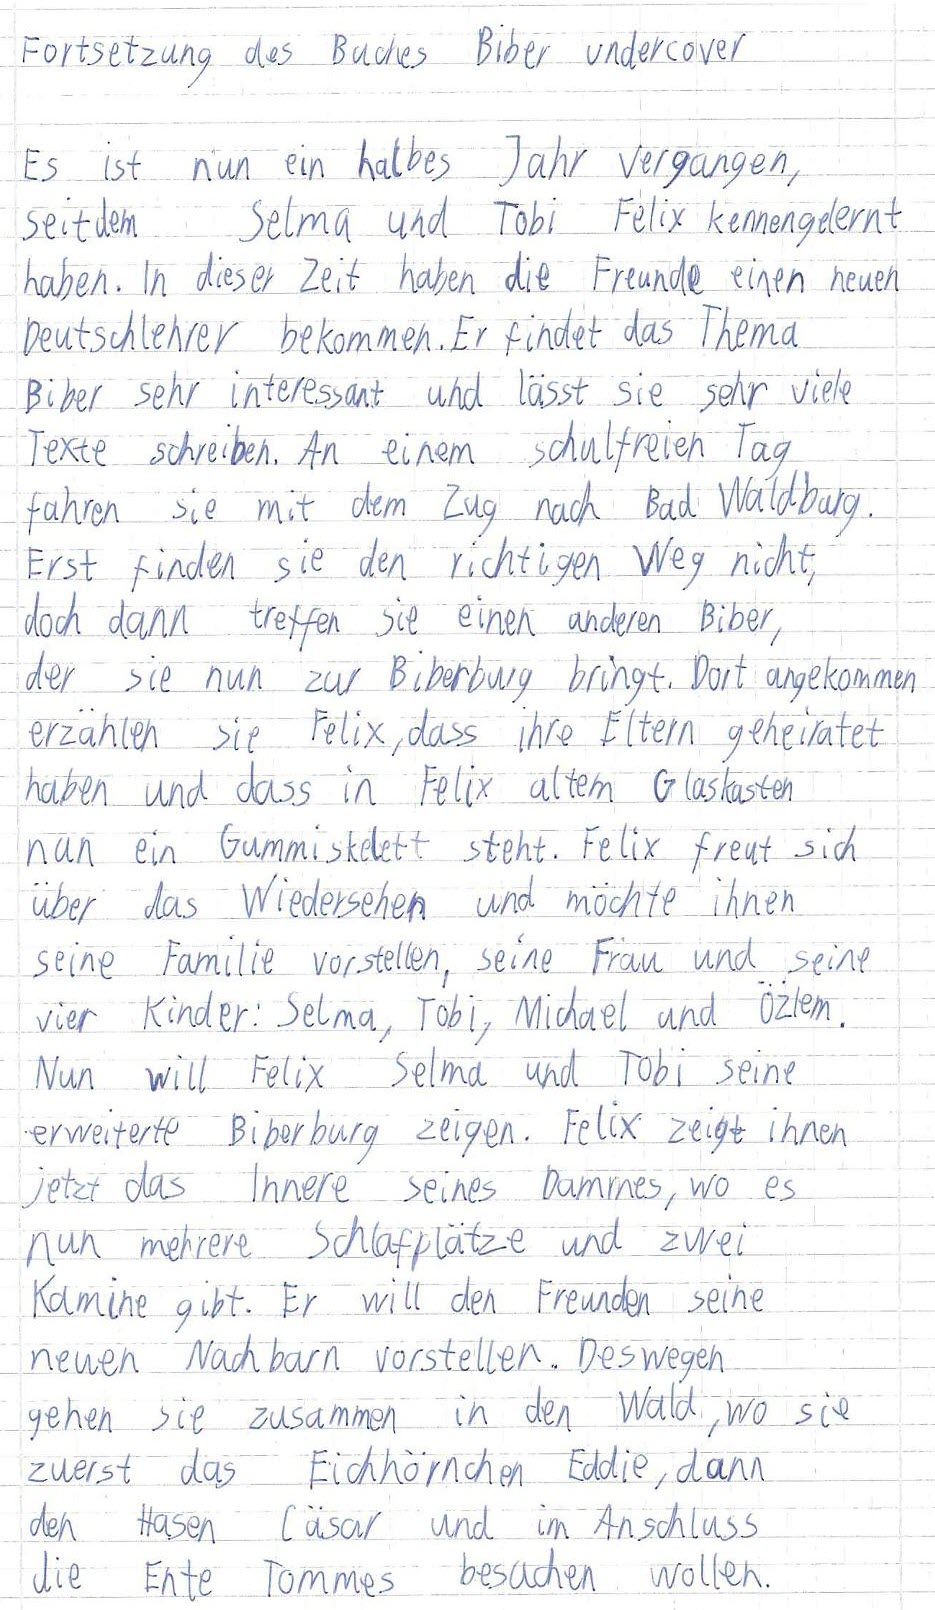 Fortsetzung des Buches Biber undercover
Es ist nun ein halbes Jahr vergangen,
seitdem Selma und Tobi Felix kennengelernt
haben. In dieser Zeit haben die Freunde einen neuen
Deutschlehrer bekommen. Er findet das Thema
Biber sehr interessant und lässt sie sehr viele
Texte schreiben. An einem schulfreien Tag
fahren sie mit dem Zug nach Bad Waldburg.
Erst finden sie den richtigen Weg nicht,
doch dann treffen sie einen anderen Biber,
der sie nun zur Biberburg bringt. Dort angekommen
erzählen sie Felix, dass ihre Eltern geheiratet
haben und dass in Felix altem Glaskasten
nun ein Gummiskelett steht. Felix freut sich
über das Wiedersehen und möchte ihnen
seine Familie vorstellen, seine Frau und seine
vier Kinder: Selma, Tobi, Michael und Özlem.
Nun will Felix Selma und Tobi seine
erweiterte Biberburg zeigen. Felix zeigt ihnen
jetzt das Innere seines Dammes, wo es
nun mehrere Schlafplätze und zwei
Kamine gibt. Er will den Freunden seine
neuen Nachbarn vorstellen. Deswegen
gehen sie zusammen in den Wald, wo sie
zuerst das Eichhörnchen Eddie, dann
den Hasen Cäsar und im Anschluss
die Ente Tommes besuchen wollen.